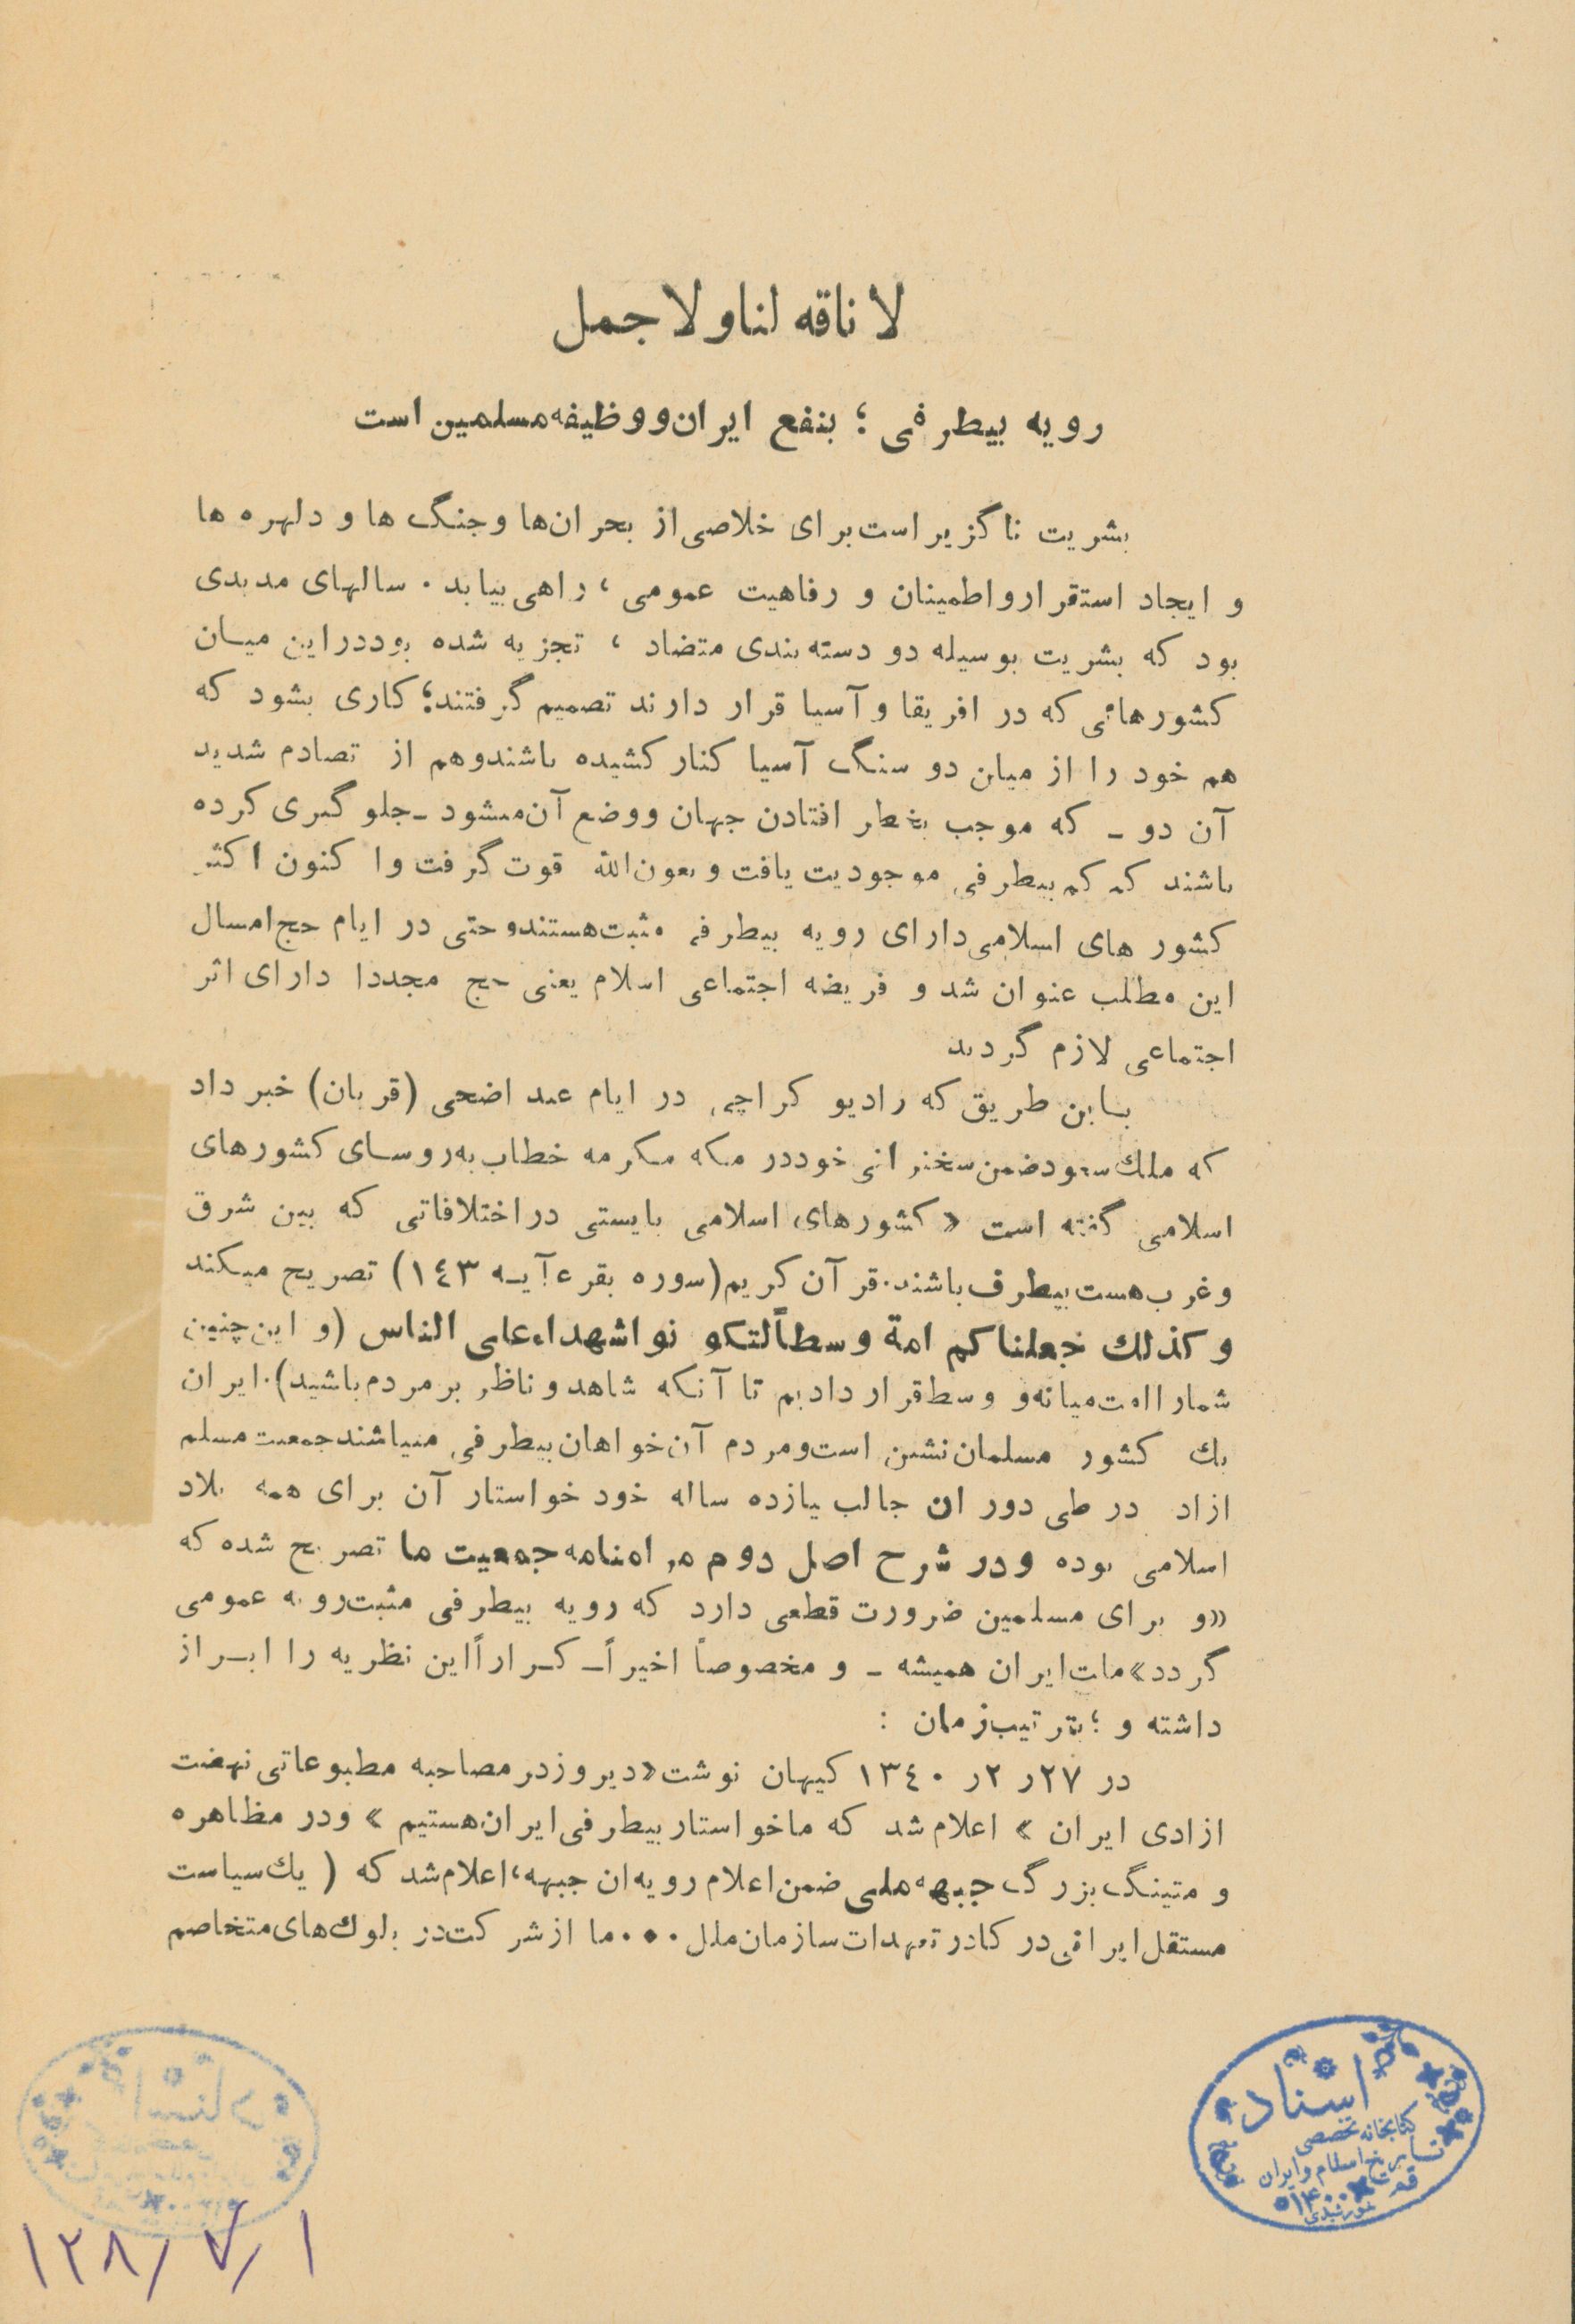 لا ناقه لنا ولا جمل
رویه بیطرفی ؛ بنفع ایران و وظیفه مسلمین است
بشریت ناگزیر است برای خلاصی از بحران‌ها و جنگ ها و دلهره ها
و ایجاد استقرار و اطمینان و رفاهیت عمومی ، راهی بیابد . سالهای مدیدی
بود که بشریت بوسیله دو دسته بندی متضاد ، تجزیه شده بود در این میـان
کشورهائی که در افریقا و آسیا قرار دارند تصمیم گرفتند ؛ کاری بشود که
هم خود را از میان دو سنگ آسیا کنار کشیده باشند و هم از تصادم شدید
آن دو ـ که موجب بخطر افتادن جهان و وضع آن میشود ـ جلو گیری کرده
باشند که کم بیطرفی موجودیت یافت و بعون الله قوت گرفت و ا کنون اکثر
کشور های اسلامی دارای رویه بیطرفی مثبت هستند و حتی در ایام حج امسال
این مطلب عنوان شد و فریضه اجتماعی اسلام یعنی حج مجددا دارای اثر
اجتماعی لازم گردید
بـاین طریق که رادیو کراچی در ایام عید اضحی (قربان) خبر داد
که ملك سعود ضمن سخنرانی خود در مکه مکرمه خطاب به روسـای کشورهای
اسلامی گفته است «کشورهای اسلامی بایستی در اختلافاتی که بین شرق
و غرب هست بیطرف باشند . قرآن کریم (سوره بقره آیـه ١٤٣) تصریح میکند
و کذلك جعلناکم امة وسطاً لتکو نوا شهداء علی الناس (و این چنین
شمارا امت میانه و وسط قرار دادیم تا آنکه شاهد و ناظر بر مردم باشید) . ایران
یك کشور مسلمان نشین است و مردم آن خواهان بیطرفی میباشند جمعیت مسلم
ازاد در طی دوران جالب یازده ساله خود خواستار آن برای همه بلاد
اسلامی بوده و در شرح اصل دوم مرامنامه جمعیت ما تصریح شده که
«و برای مسلمین ضرورت قطعی دارد که رویه بیطرفی مثبت رویه عمومی
گردد» ملت ایران همیشه ـ و مخصوصاً اخیراً ـ کـراراً این نظریه را ابـراز
داشته و ؛ بترتیب زمان :
در ٢٧ر ٢ر ١٣٤٠ کیهان نوشت «دیروز در مصاحبه مطبوعاتی نهضت
ازادی ایران » اعلام شد که ما خواستار بیطرفی ایران هستیم » و در مظاهره
و متینگ بزرگ جبهه ملی ضمن اعلام رویه ان جبهه ، اعلام شد که ( یك سیاست
مستقل ایرانی در کادر تعهدات سازمان ملل ۰۰۰ ما از شرکت در بلوك های متخاصم
اسناد
کتابخانه تخصصی
تاریخ اسلام و ایران
قم
١٤٠٠
خورشیدی
١٢٨/٧/١